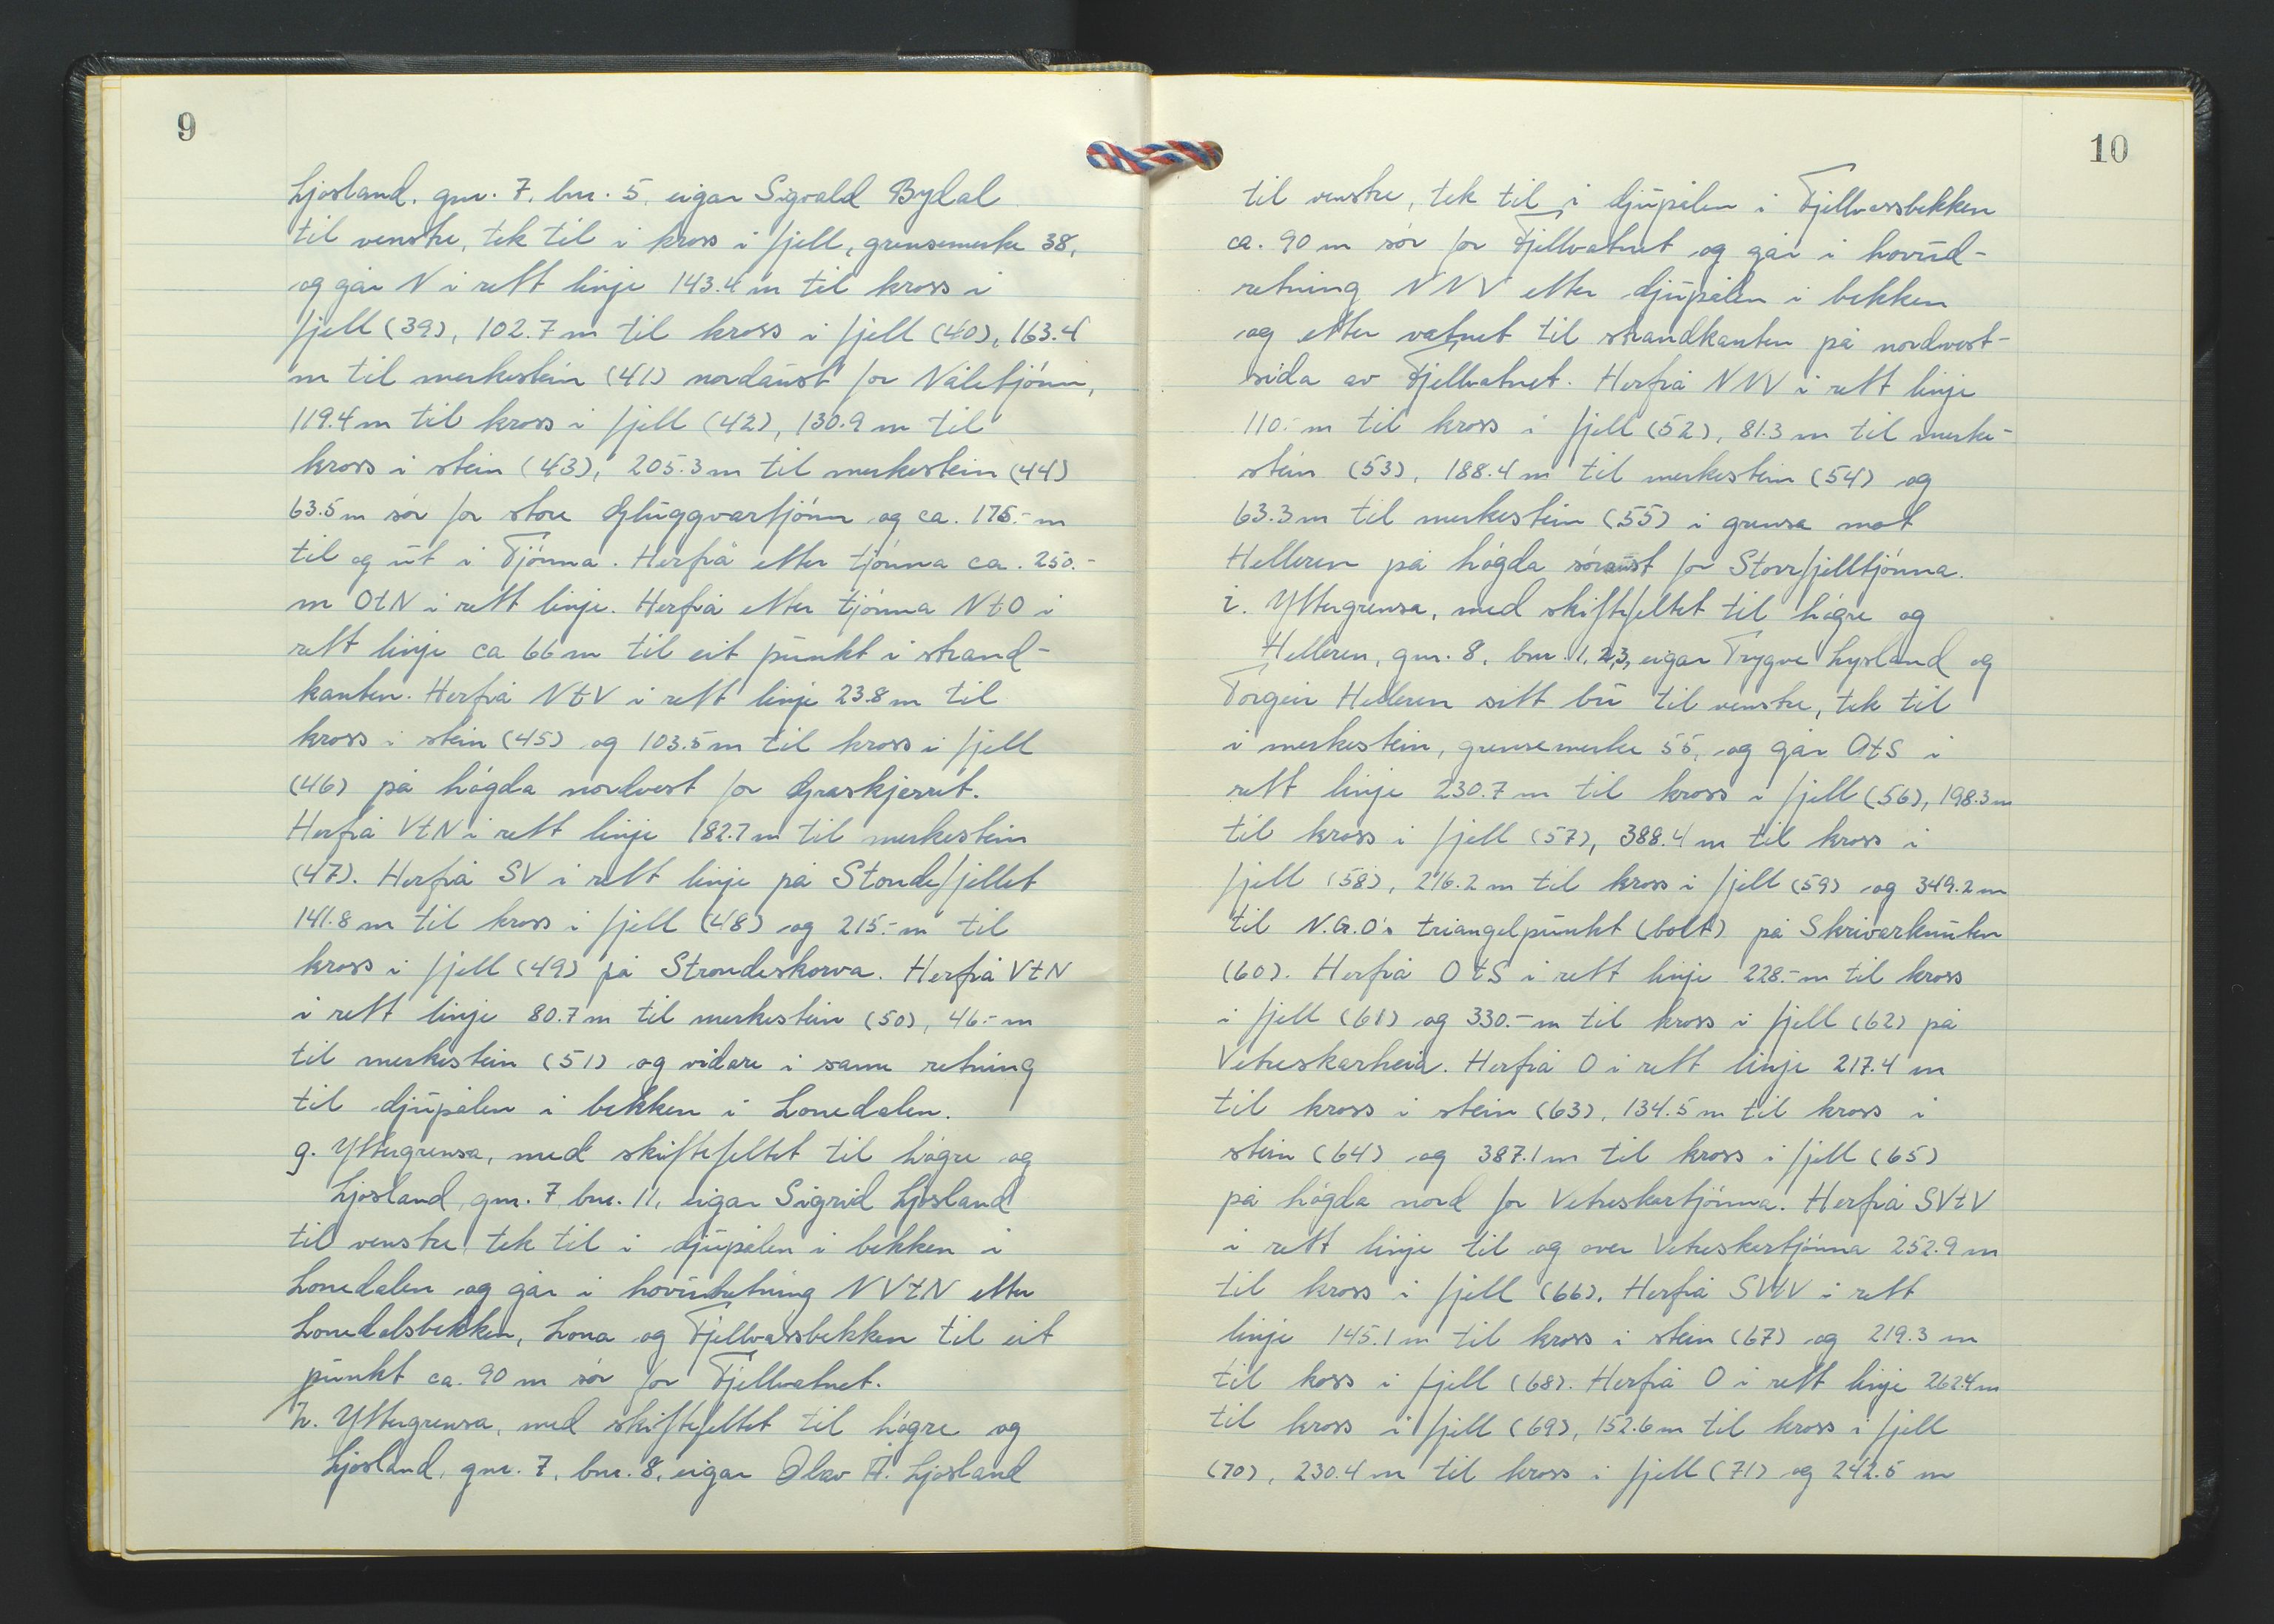 9
Ljosland, gnr. 7, bnr. 5, eigar Sigvald Bydal
til venstre, tek til i kross i fjell, grensemerke 38,
og går N i rett linje 143.4 m til kross i
fjell (39), 102.7 m til kross i fjell (40), 163.4
m til merkestein (41) nordaust for Nåletjönn,
119.4 m til kross i fjell (42), 130.9 m til
kross i stein (43), 205.3 m til merkestein (44)
63.5 m sör for store Gluggvartjönn og ca. 175.- m
til og ut i Tjönna. Herfrå etter tjönna ca. 250.-
m OtN i rett linje. Herfrå etter tjönna NtO i
rett linje ca 66 m til eit punkt i strand-
kanten. Herfrå NtV i rett linje 23.8 m til
kross i stein (45) og 103.5 m til kross i fjell
(46) på högda nordvest for Graskjerrit.
Herfrå VtN i rett linje 182.7 m til merkestein
(47). Herfrå SV i rett linje på Stondefjellet
141.8 m til kross i fjell (48) og 215.- m til
kross i fjell (49) på Strondeskorva. Herfrå VtN
i rett linje 80.7 m til merkestein (50), 46.- m
til merkestein (51) og vidare i same retning
til djupålen i bekken i Lonedalen.
g. Yttergrensa, med skiftefeltet til högre og
Ljosland, gnr. 7, bnr. 11, eigar Sigrid Ljosland
til venstre, tek til i djupålen i bekken i
Lonedalen og går i hovudretning NVtN etter
Lonedalsbekken, Lona og Fjellvassbekken til eit
punkt ca. 90 m sör for Fjellvatnet.
h. Yttergrensa, med skiftefeltet til högre og
Ljosland, gnr. 7, bnr. 8, eigar Olav A. Ljosland
10
til venstre, tek til i djupålen i Fjellvassbekken
ca. 90 m sör for Fjellvatnet og går i hovud-
retning NNV etter djupålen i bekken
og etter vatnet til strandkanten på nordvest-
sida av Fjellvatnet. Herfrå NNV i rett linje
110.- m til kross i fjell (52), 81.3 m til merke-
stein (53), 188.4 m til merkestein (54) og
63.3 m til merkestein (55) i grensa mot
Helleren på högda söraust for Storrfjelltjönna.
i. Yttergrensa, med skiftefeltet til högre og
Helleren, gnr. 8, bnr. 1, 2, 3, eigar Trygve Lysland og
Torgeir Helleren sitt bu til venstre, tek til
i merkestein, grensemerke 55, og går OtS i
rett linje 230.7 m til kross i fjell (56), 198.3 m
til kross i fjell (57), 388.4 m til kross i
fjell (58), 216.2 m til kross i fjell (59) og 349.2 m
til N.G.O's triangelpunkt (bolt) på Skrivarknuten
(60). Herfrå OtS i rett linje 228.- m til kross
i fjell (61) og 330.- m til kross i fjell (62) på
Vetreskarheia. Herfrå O i rett linje 217.4 m
til kross i stein (63), 134.5 m til kross i
stein (64) og 387.1 m til kross i fjell (65)
på högda nord for Vetreskartjönna. Herfrå SVtV
i rett linje til og over Vetreskartjönna 252.9 m
til kross i fjell (66). Herfrå SVtV i rett
linje 145.1 m til kross i stein (67) og 219.3 m
til koss i fjell (68). Herfrå O i rett linje 262.4 m
til kross i fjell (69), 152.6 m til kross i fjell
(70), 230.4 m til kross i fjell (71) og 242.5 m